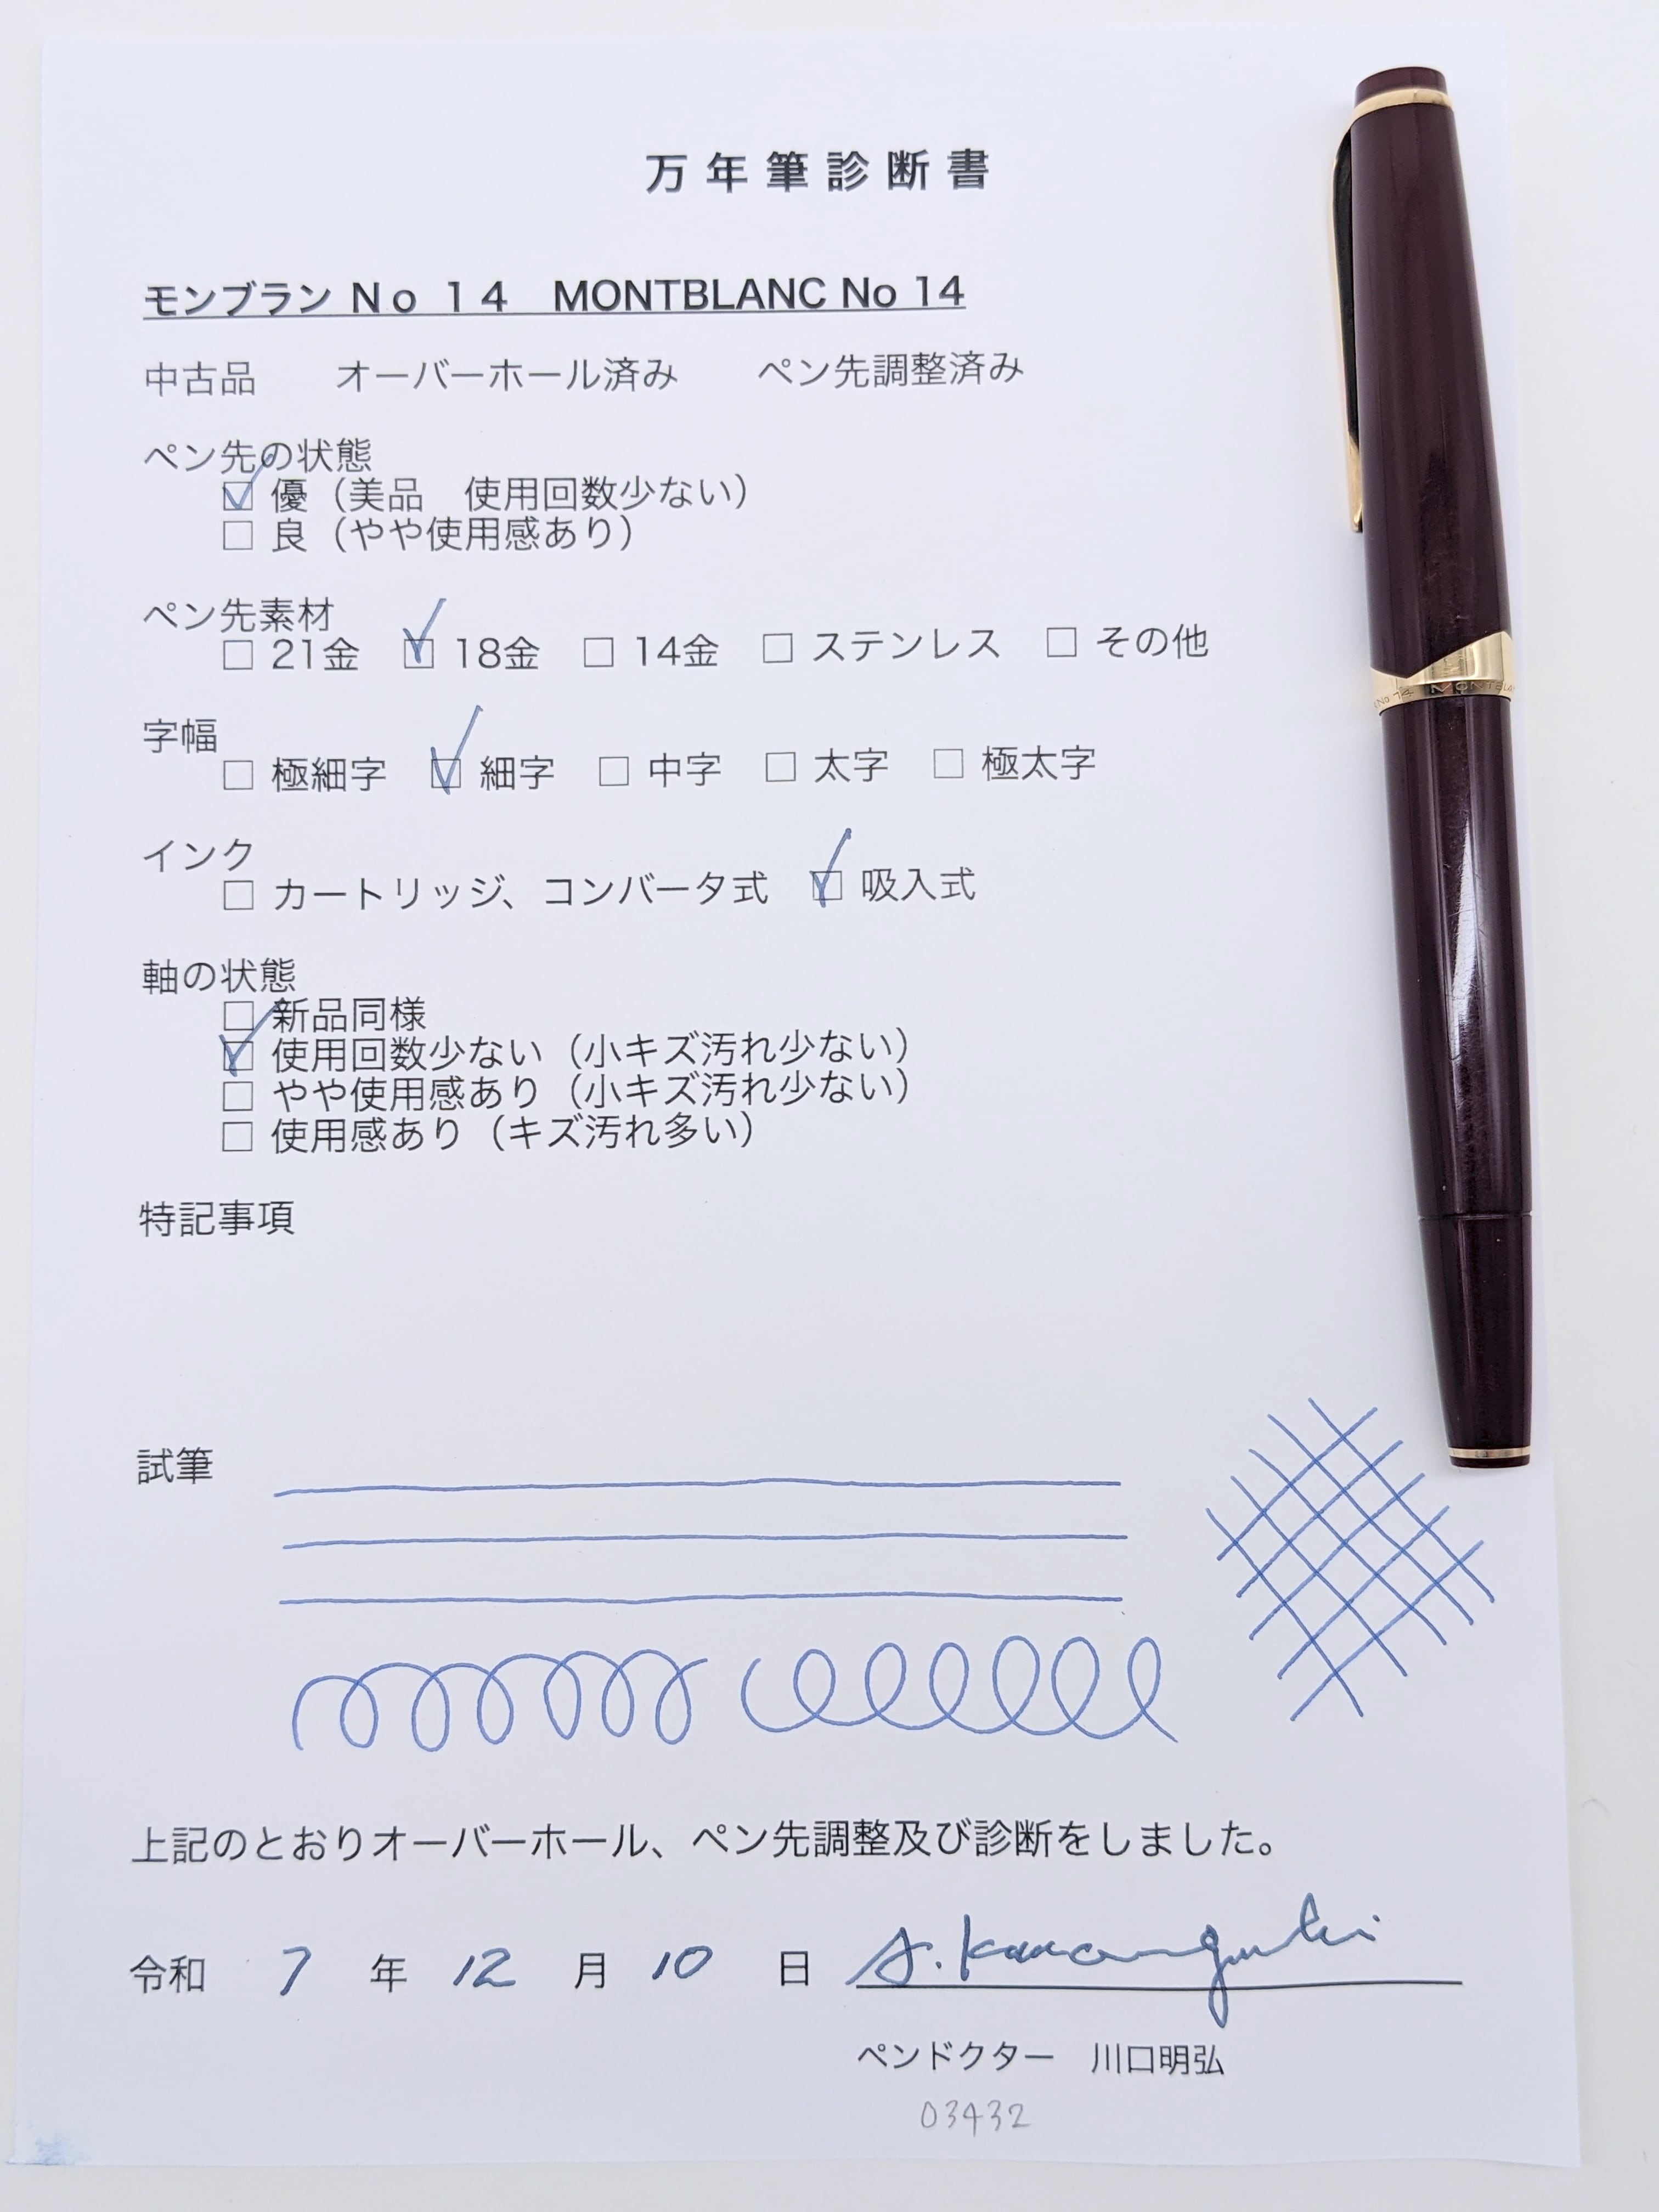 万年筆診断書
モンブラン Ｎｏ １４　MONTBLANC No 14
中古品　　オーバーホール済み　　ペン先調整済み
ペン先の状態
☑ 優（美品　使用回数少ない）
□ 良（やや使用感あり）
ペン先素材
□ 21金　☑ 18金　□ 14金　□ ステンレス　□ その他
字幅
□ 極細字　☑ 細字　□ 中字　□ 太字　□ 極太字
インク
□ カートリッジ、コンバータ式　☑ 吸入式
軸の状態
□ 新品同様
☑ 使用回数少ない（小キズ汚れ少ない）
□ やや使用感あり（小キズ汚れ少ない）
□ 使用感あり（キズ汚れ多い）
特記事項
試筆
上記のとおりオーバーホール、ペン先調整及び診断をしました。
令和 7 年 12 月 10 日 A. Kawaguchi
ペンドクター　川口明弘
03432
No 14 MONTBLA